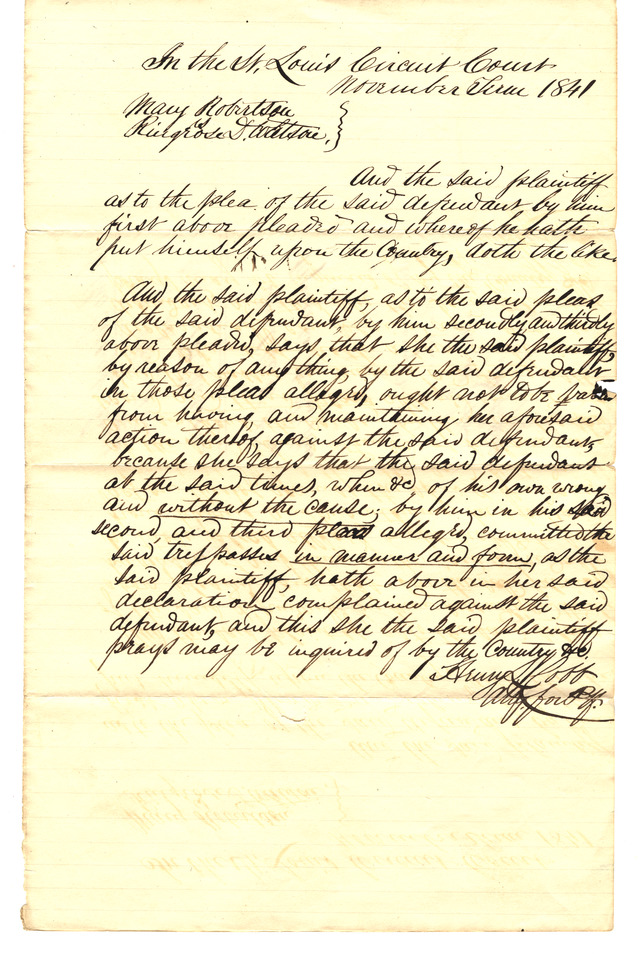 In the St. Louis Circuit Court
November Term 1841
Mary Robertson
vs
Ringrose D. Watson. }
And the said plaintiff
as to the plea of the said defendant by him
first above pleaded and whereof he hath
put himself upon the Country, doth the like.
And the said plaintiff, as to the said pleas
of the said defendant, by him secondly and thirdly
above pleaded, says, that she the said plaintiff,
by reason of any thing, by the said defendant
in those pleas alleged, ought not to be
from having, and maintaining her aforesaid
action thereof, against the said defendant,
because she says that the said defendant
at the said times, when &c of his own wrong
and without the cause, by him in his said
second, and third pleas alleged, committed the
said trespasses in manner and form, as the
said plaintiff, hath above in her said
declaration complained against the said
defendant, and this she the said plaintiff
prays may be inquired of by the Country &c
Henry Cobb
Atty for Plff.